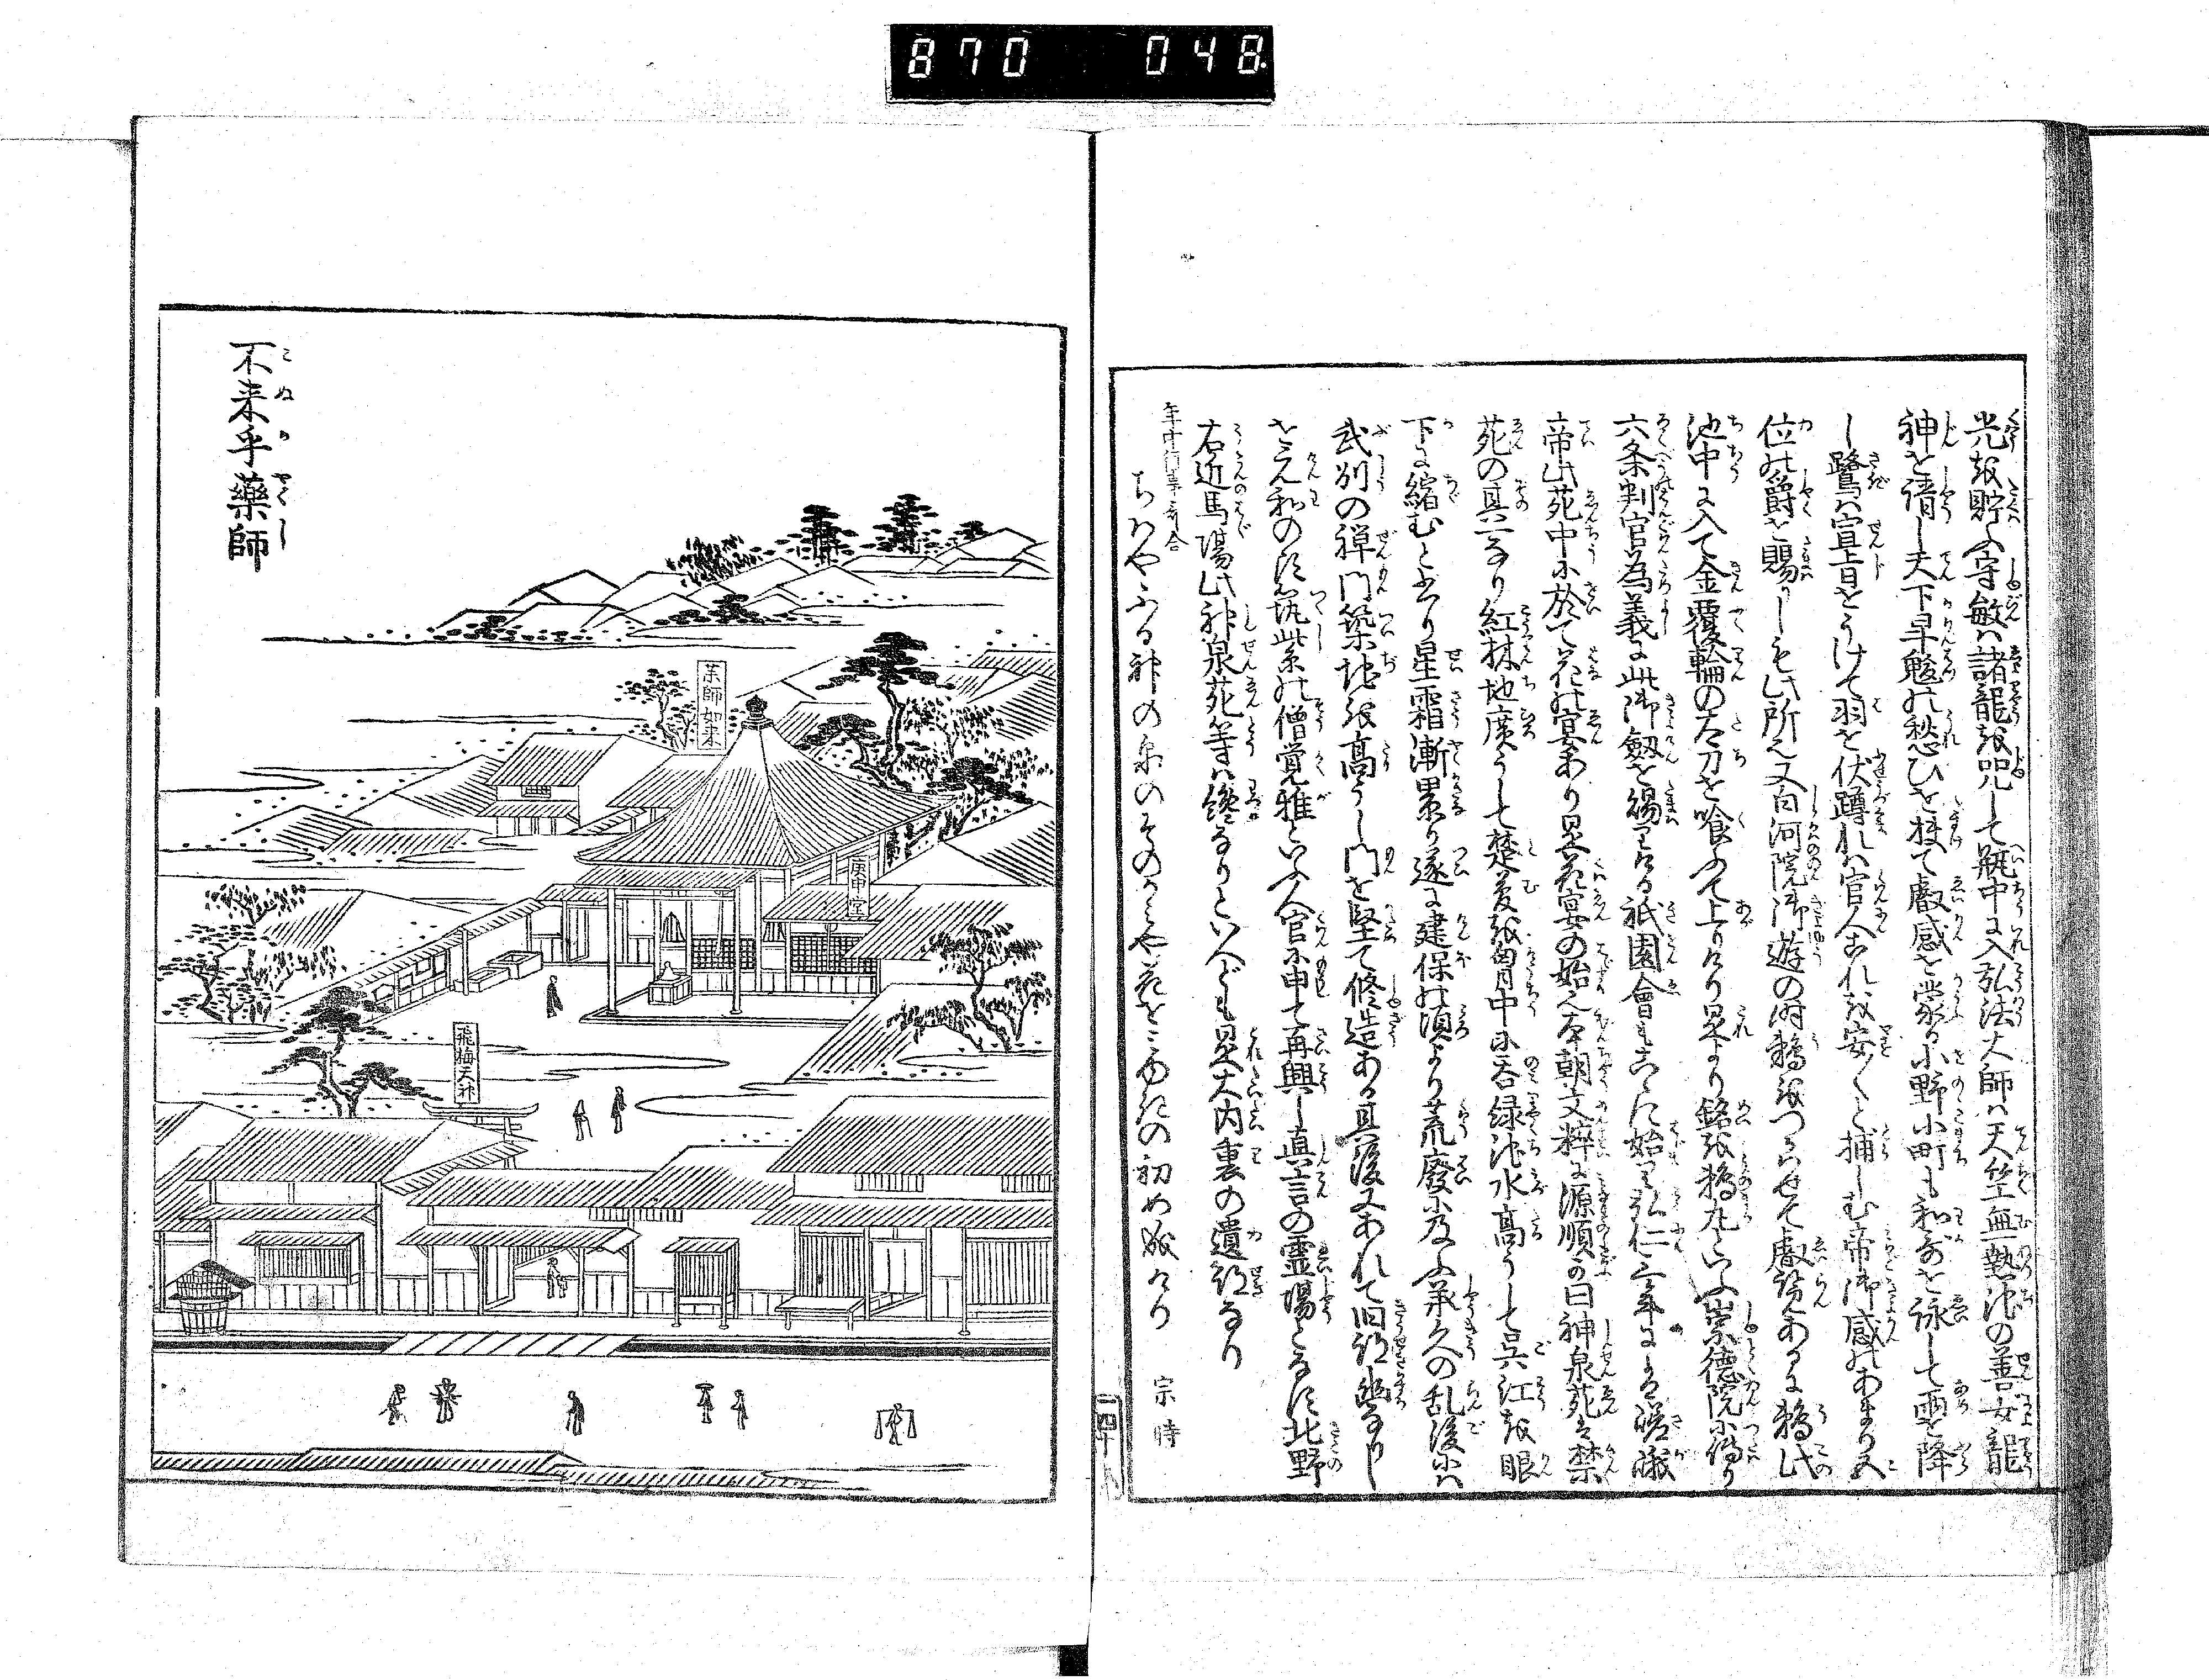 870 048
光を貯ふ守敏は諸龍を咒して瓶中に入弘法大師は天竺無熱池の善女龍
神を請し天下旱魃の愁ひを扶て叡感を蒙る小野小町も和歌を詠して雨を降
し鷺は宣旨をうけて羽を伏蹲れは官人これを安〱と捕しむ帝御感のあまり五
位の爵を賜りしも此所也又白河院御遊の時鵜をつかはせて叡覧あるに鵜此
池中に入て金覆輪の太刀を喰ふて上りけり是より銘を鵜丸といふ崇徳院に伝り
六条判官為義に此御劔を賜りける祇園會もこゝに始る弘仁三年に嵯峨
帝此苑中に於て花の宴あり是花宴の始也本朝文粋に源順か曰神泉苑は禁
苑の其一なり紅林地廣うして楚夢を胷中に呑緑池水高うして呉江を眼
下に縮むと云り星霜漸累り遂に建保の頃より荒廢に及ふ承久の乱後には
武州の禅門築地を高うし門を堅て修造ある其後又あれて旧跡幽なりし
を元和のころ筑紫の僧覚雅といふ人官に申て再興し真言の霊場となる北野
右近馬場此神泉苑等は纔なりといへども是大内裏の遺跡なり
年中行事歌合
ちはやふる神の泉のそのかみや花をみゆきの初め成けり 宗時
不来乎藥師
こぬかやくし
薬師如来
庚申堂
飛梅天神